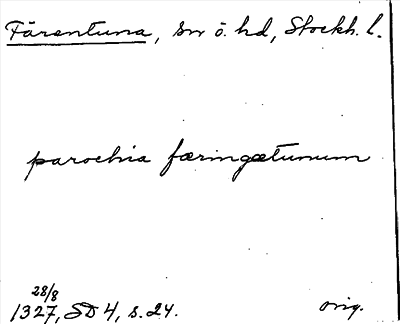 Färentuna, sn ö. hd, Stockh. l.
parochia færingætunum
28/8
1327, SD 4, s. 24.
orig.